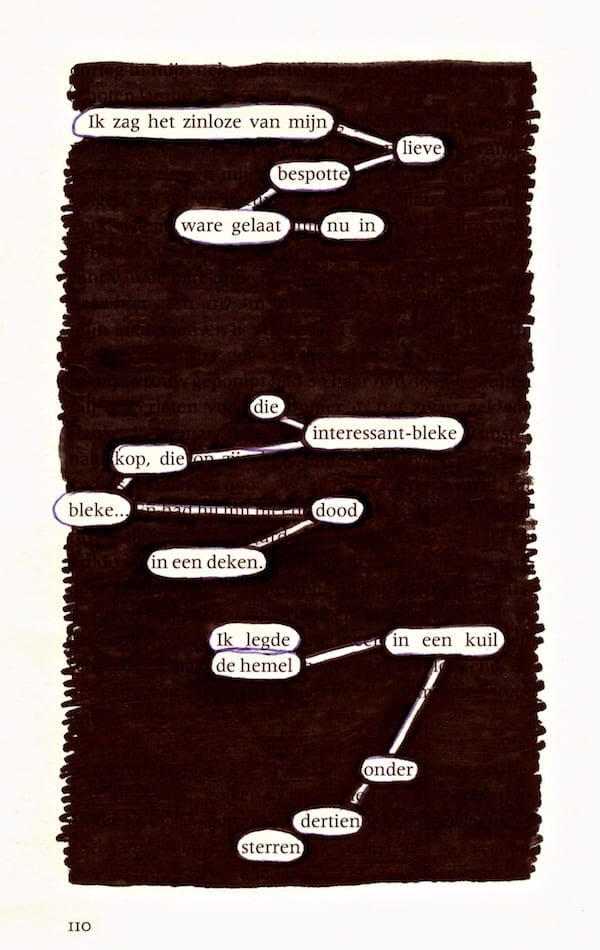 Ik zag het zinloze van mijn
lieve
bespotte
ware gelaat nu in
die
interessant-bleke
kop, die
bleke... dood
in een deken.
Ik legde in een kuil
de hemel
onder
dertien
sterren
110